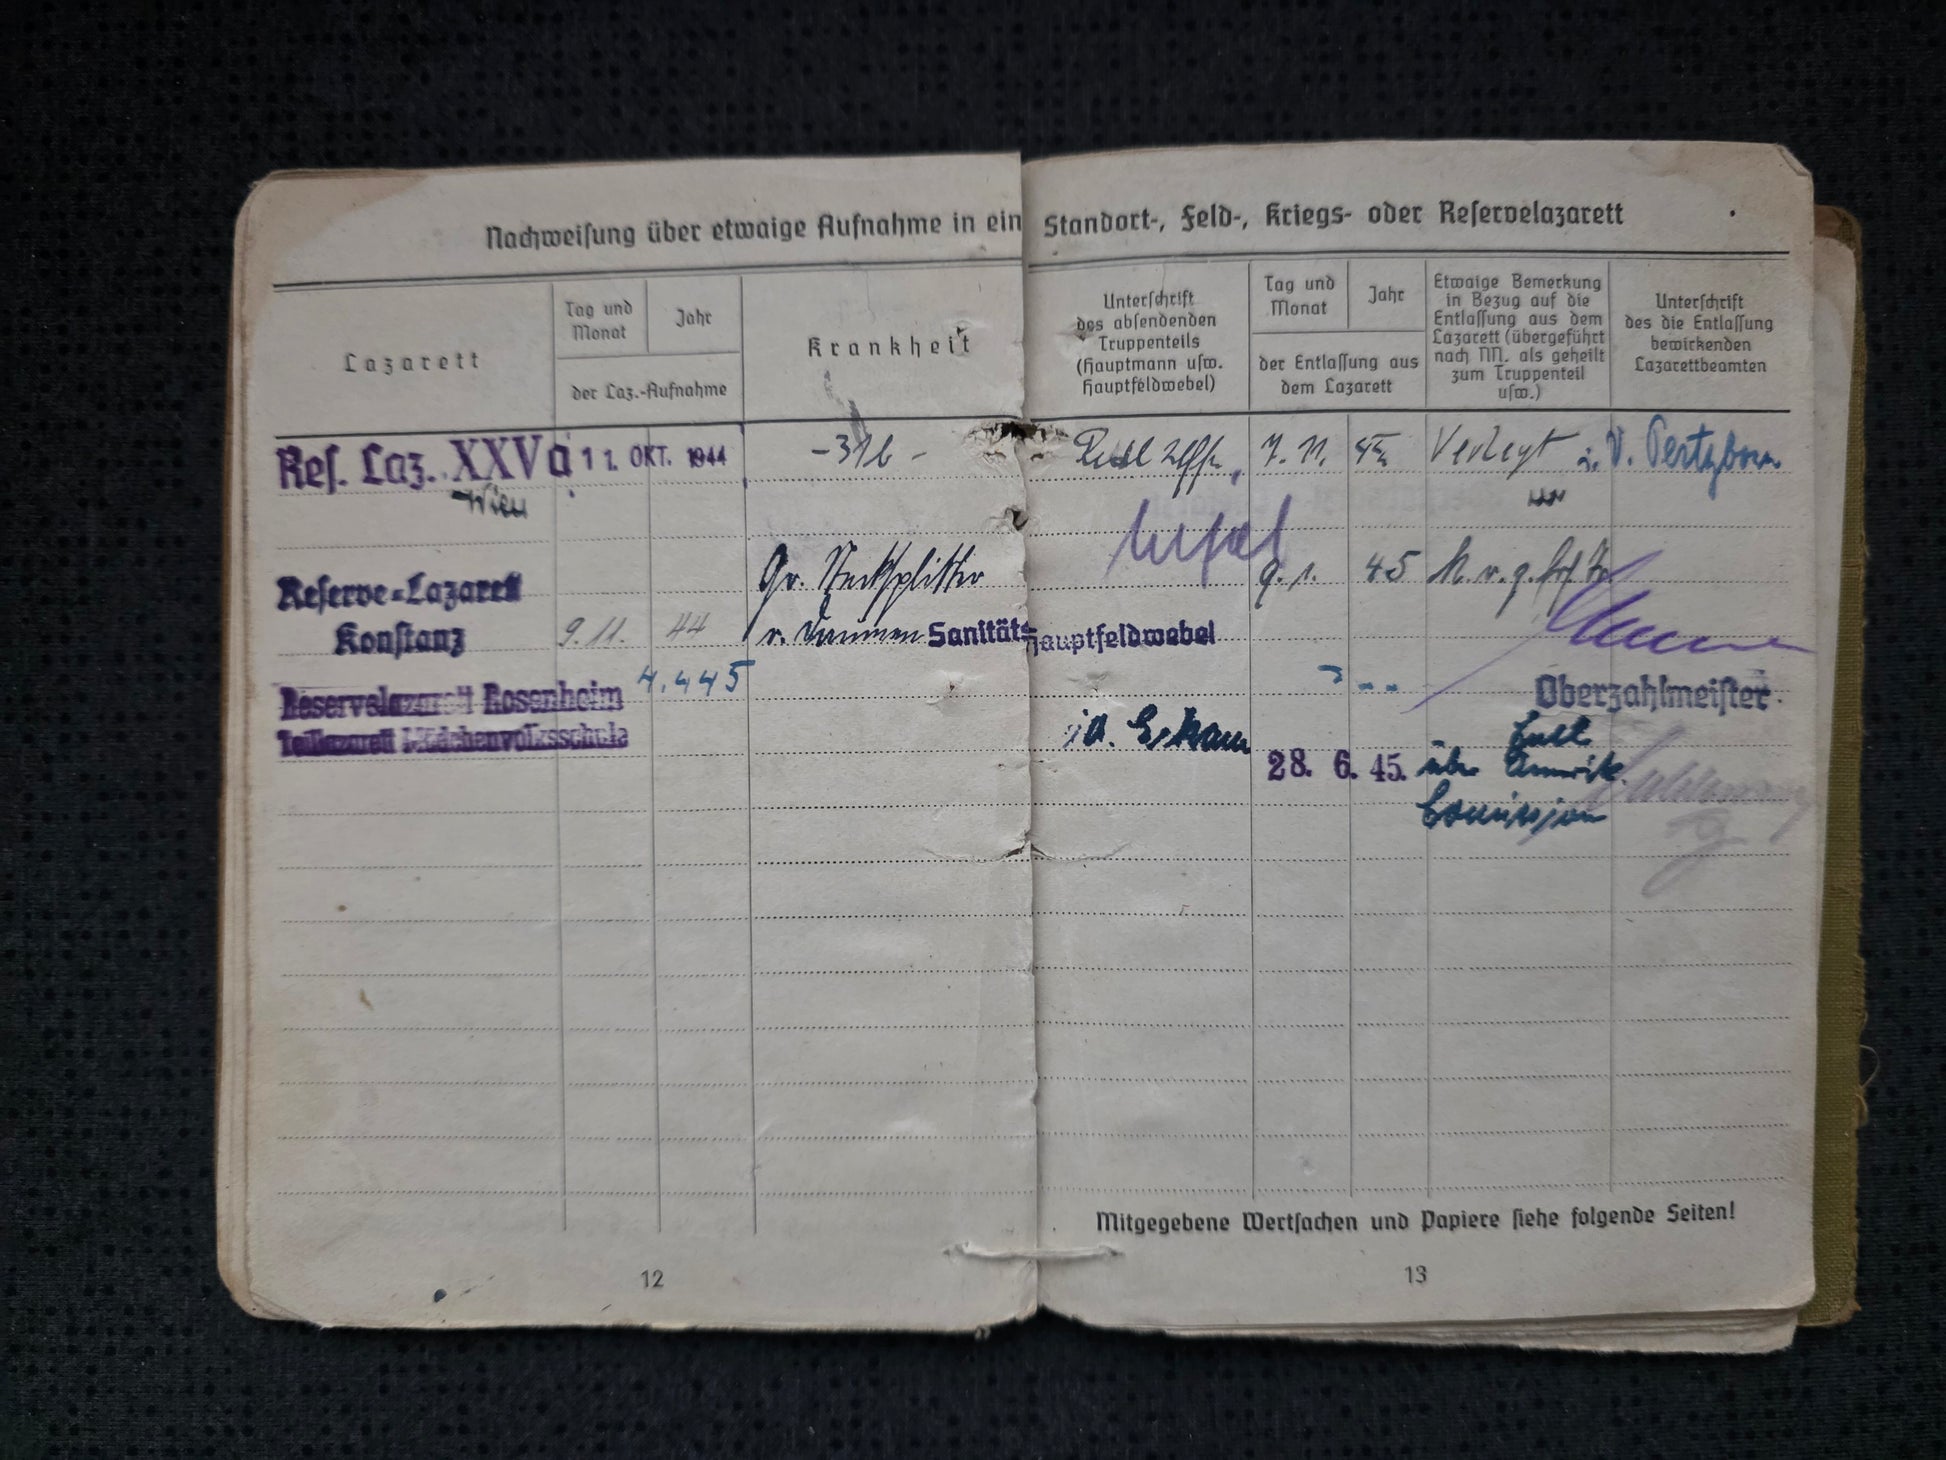 Nachweisung über etwaige Aufnahme in ein Standort-, Feld-, Kriegs- oder Reservelazarett
Lazarett
Tag und
Monat
Jahr
der Laz.-Aufnahme
Krankheit
Unterschrift
des absendenden
Truppenteils
(Hauptmann usw.
Hauptfeldwebel)
Tag und
Monat
Jahr
der Entlassung aus
dem Lazarett
Etwaige Bemerkung
in Bezug auf die
Entlassung aus dem
Lazarett (übergeführt
nach NN. als geheilt
zum Truppenteil
usw.)
Unterschrift
des die Entlassung
bewirkenden
Lazarettbeamten
Res. Laz. XXVa 11. OKT. 1944 -31b- 7. 11. Verlegt
Wien
Reserve-Lazarett Gr. Stecksplitter 9. 1. 45
Konstanz 9. 11. 44 Daumen Sanitäts Hauptfeldwebel
4.4.45
Reservelazarett Rosenheim Oberzahlmeister
Teillazarett Mädchenvolksschule Entl.
28. 6. 45. über Amerik.
Comission
Mitgegebene Wertsachen und Papiere siehe folgende Seiten!
12
13